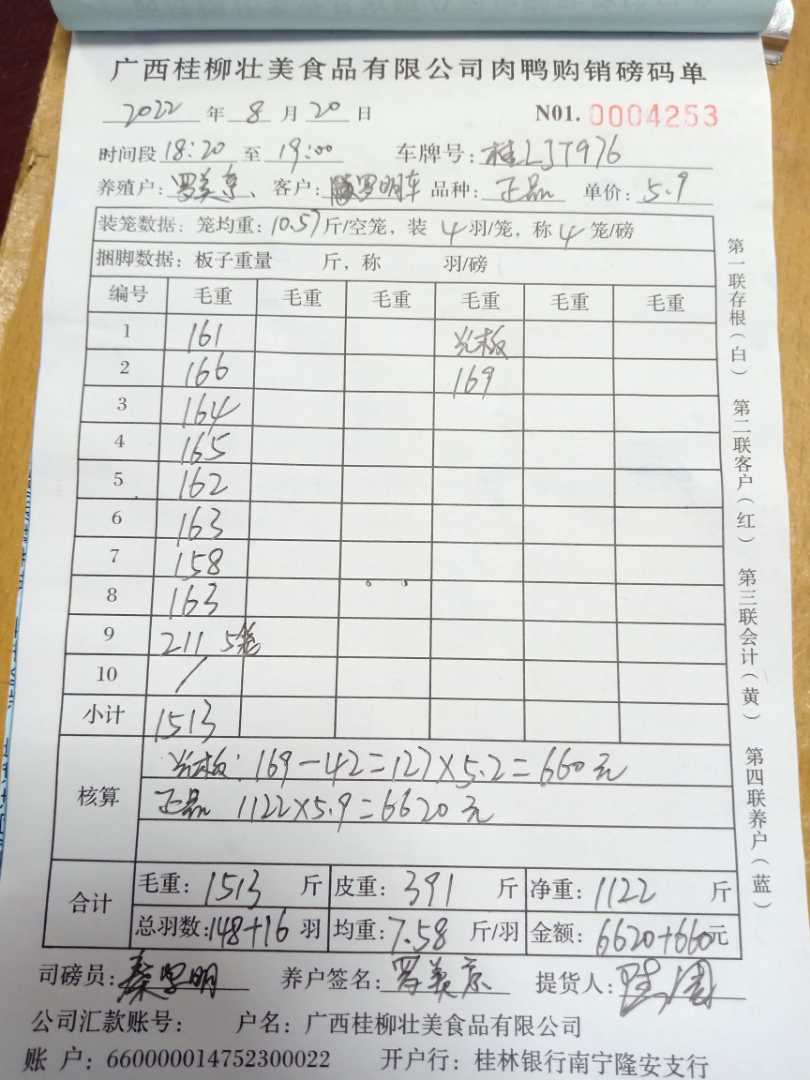 广西桂柳壮美食品有限公司肉鸭购销磅码单
2022 年 8 月 20 日 N01. 0004253
时间段 18:20 至 19:00 车牌号: 桂LJT976
养殖户: 罗美京、 客户: 罗明车 品种: 正品 单价: 5.9
装笼数据: 笼均重: 10.57 斤/空笼, 装 4 羽/笼, 称 4 笼/磅
捆脚数据: 板子重量 斤, 称 羽/磅
编号 毛重 毛重 毛重 毛重 毛重 毛重
1 161 光板
2 166 169
3 164
4 165
5 162
6 163
7 158
8 163
9 211 5笼
10 /
小计 1513
核算
光板: 169-42=127×5.2=660元
正品 1122×5.9=6620元
合计
毛重: 1513 斤 皮重: 391 斤 净重: 1122 斤
总羽数: 148+16 羽 均重: 7.58 斤/羽 金额: 6620+660元
司磅员: 养户签名: 罗美京 提货人:
公司汇款账号: 户名: 广西桂柳壮美食品有限公司
账 户: 660000014752300022 开户行: 桂林银行南宁隆安支行
第一联存根(白) 第二联客户(红) 第三联会计(黄) 第四联养户(蓝)